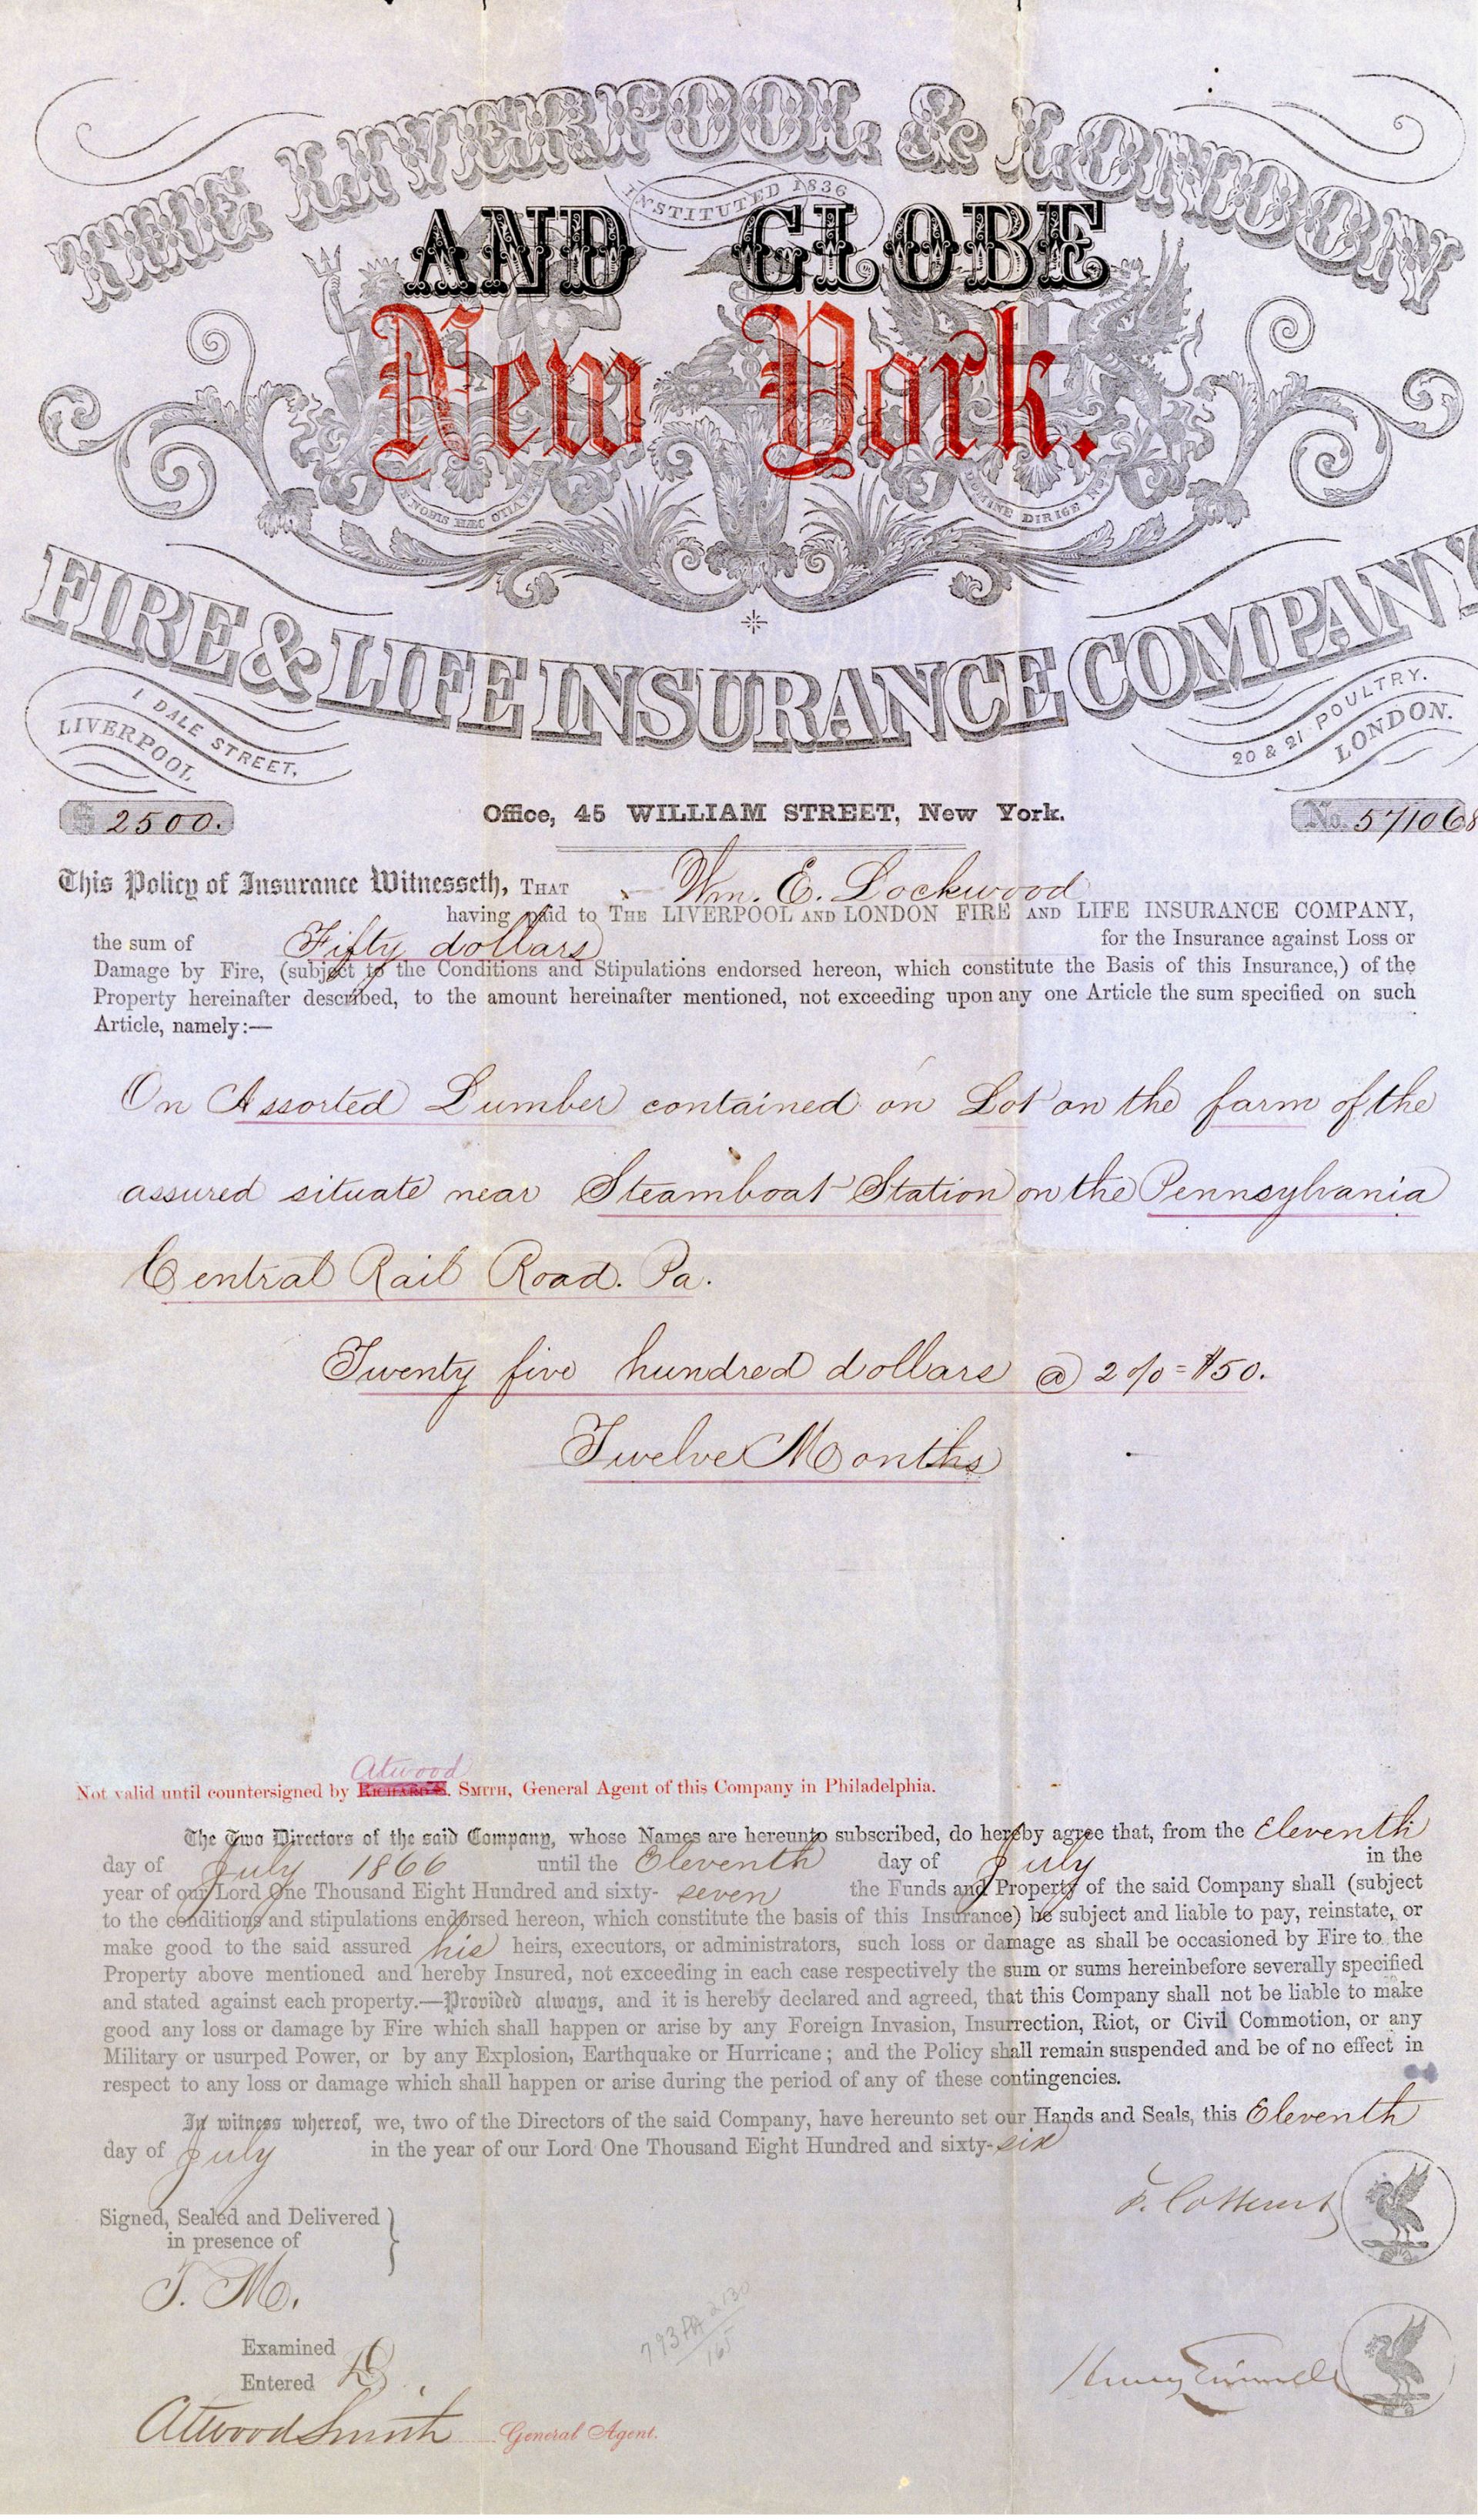 THE LIVERPOOL & LONDON
INSTITUTED 1836
AND GLOBE
New York.
NOBIS HÆC OTIA
DIRIGE
FIRE & LIFE INSURANCE COMPANY
1 DALE STREET,
LIVERPOOL
20 & 21 POULTRY.
LONDON.
$ 2500.
Office, 45 WILLIAM STREET, New York.
No. 571068
This Policy of Insurance Witnesseth, THAT Wm. E. Lockwood
having paid to THE LIVERPOOL AND LONDON FIRE AND LIFE INSURANCE COMPANY,
the sum of Fifty dollars for the Insurance against Loss or
Damage by Fire, (subject to the Conditions and Stipulations endorsed hereon, which constitute the Basis of this Insurance,) of the
Property hereinafter described, to the amount hereinafter mentioned, not exceeding upon any one Article the sum specified on such
Article, namely:—
On Assorted Lumber contained on Lot on the farm of the
assured situate near Steamboat Station on the Pennsylvania
Central Rail Road. Pa.
Twenty five hundred dollars @ 2 % = $50.
Twelve Months
Atwood
Not valid until countersigned by RICHARD S. SMITH, General Agent of this Company in Philadelphia.
The Two Directors of the said Company, whose Names are hereunto subscribed, do hereby agree that, from the Eleventh
day of July 1866 until the Eleventh day of July in the
year of our Lord One Thousand Eight Hundred and sixty- seven the Funds and Property of the said Company shall (subject
to the conditions and stipulations endorsed hereon, which constitute the basis of this Insurance) be subject and liable to pay, reinstate, or
make good to the said assured his heirs, executors, or administrators, such loss or damage as shall be occasioned by Fire to the
Property above mentioned and hereby Insured, not exceeding in each case respectively the sum or sums hereinbefore severally specified
and stated against each property.—Provided always, and it is hereby declared and agreed, that this Company shall not be liable to make
good any loss or damage by Fire which shall happen or arise by any Foreign Invasion, Insurrection, Riot, or Civil Commotion, or any
Military or usurped Power, or by any Explosion, Earthquake or Hurricane; and the Policy shall remain suspended and be of no effect in
respect to any loss or damage which shall happen or arise during the period of any of these contingencies.
In witness whereof, we, two of the Directors of the said Company, have hereunto set our Hands and Seals, this Eleventh
day of July in the year of our Lord One Thousand Eight Hundred and sixty-six
Signed, Sealed and Delivered
in presence of
T. M.
793 PA 2130
165
Examined
Entered
Henry Grinnell
Atwood Smith General Agent.